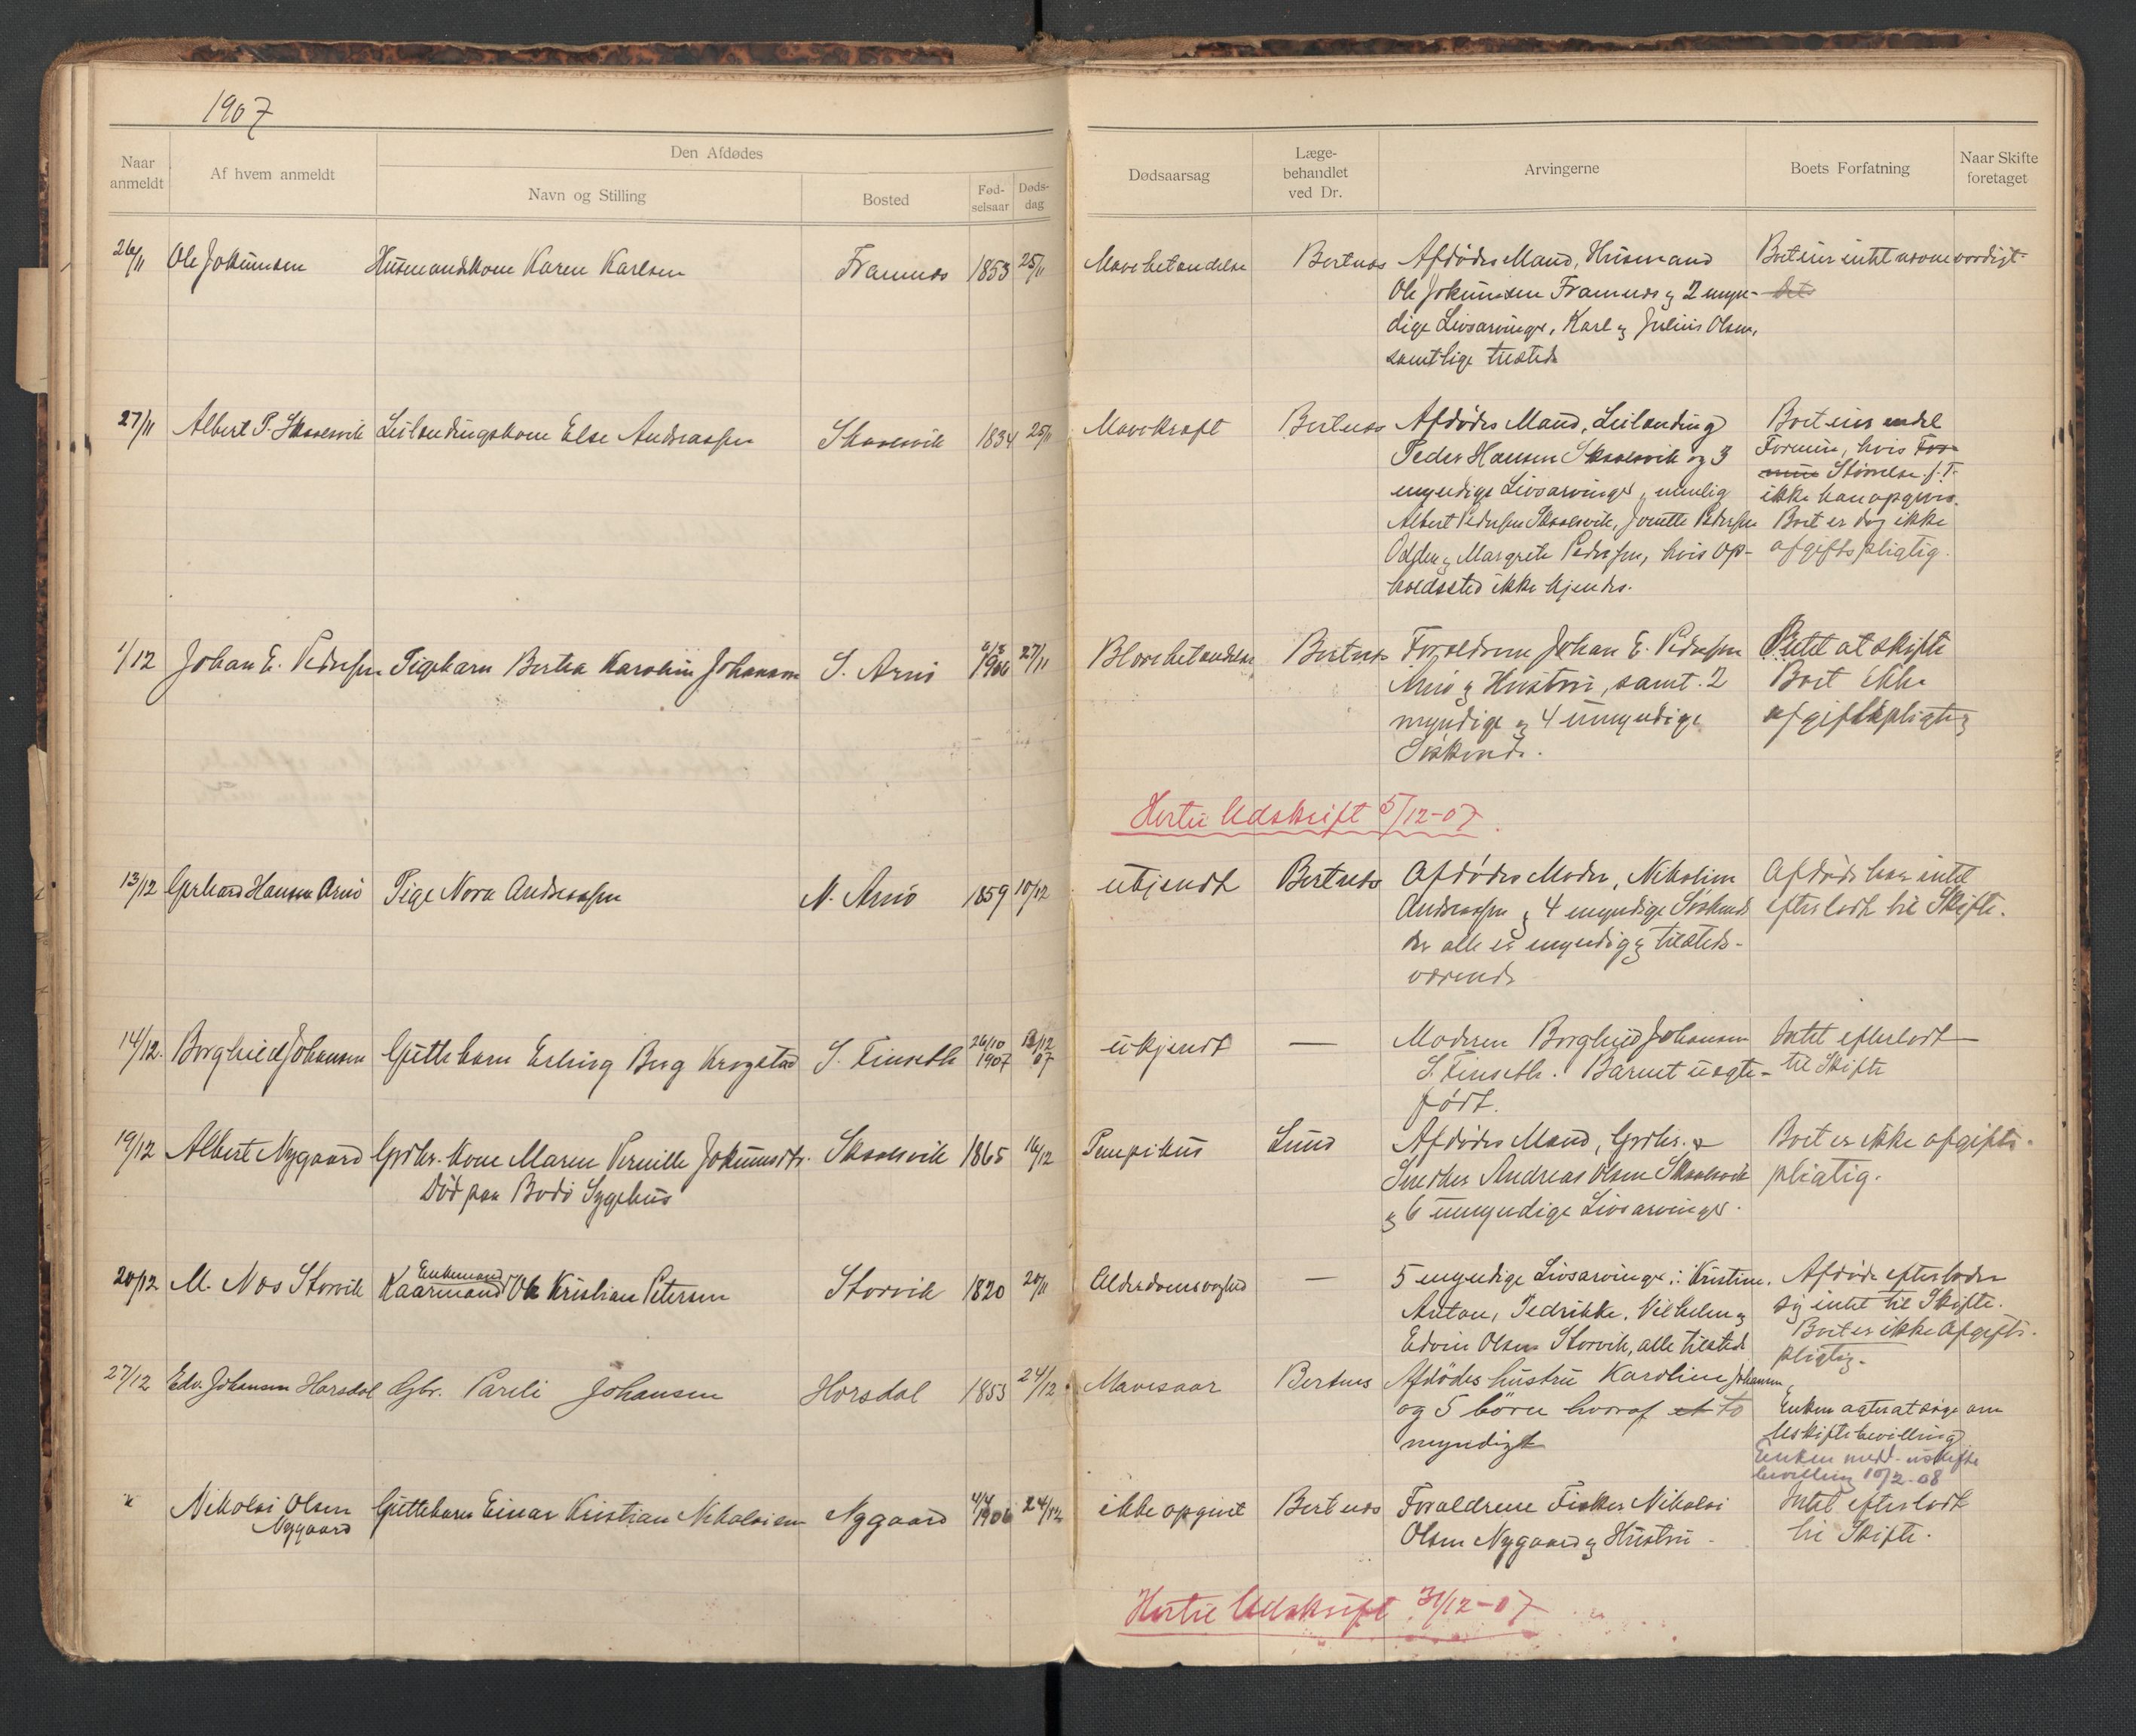 1907
Naar anmeldt
Af hvem anmeldt
Den Afdødes
Navn og Stilling
Bosted
Fød-selsaar
Døds-dag
Dødsaarsag
Læge-behandlet ved Dr.
Arvingerne
Boets Forfatning
Naar Skifte foretaget
26/11 Ole Jokumsen Husmandskone Karen Karlsen Framnes 1853 25/11 Mavebetændelse Bertnes Afdødes Mand, Husmand
Ole Jokumsen Framnes og 2 myn-
dige Livsarvinger, Karl og Julius Olsen,
samtlige tilsted
Boet eier intet nævneværdigt
27/11 Albert P. Skaalsvik Leilendingskone Else Andreassen Skaalsvik 1834 25/11 Mavekræft Bertnes Afdødes Mand, Leilending
Peder Hansen Skaalsvik og 3
myndige Livsarvinger, nemlig
Albert Pedersen Skaalsvik, Pedersen
og Margrete Pedersen, hvis op-
holdssted ikke kjendes.
Boet eier endel
Formue, hvis For-
mue Størrelse f. T.
ikke kan opgives.
Boet er dog ikke
afgiftspligtig.
1/12 Johan E. Pedersen Pigebarn Bertea Karoline Johansen S. Arnø 1906 27/11 Bertnes Forældrene Johan E. Pedersen
Arnø og Hustru, samt 2
myndige og 4 umyndige
Søskende.
Intet at skifte
Boet ikke
afgiftspligtig
Hertil Udskrift 5/12-07
13/12 Gerhard Hansen Arnø Pige Nora Andreassen N. Arnø 1859 10/12 ukjendt Bertnes Afdødes Moder, Nikoline
Andreassen og 4 myndige Søskende
der alle er myndig og tilsteds-
værende
Afdøde har intet
efterladt til Skifte.
14/12. Borghild Johansen Guttebarn Erling Berg Krogstad S. Finseth 26/10 1907 12/12 07 ukjendt — Moderen Borghild Johansen
S. Finseth. Barnet uægte-
født.
Intet efterladt
til Skifte
19/12 Albert Nygaard Grdbr. Kone Maren Pernille Jokumsdtr. Skaalsvik 1865 16/12 Lund Afdødes Mand, Grdbr. &
Smed Andreas Olsen Skaalsvik
og 6 umyndige Livsarvinger.
Død paa Bodø Sygehus
Boet er ikke afgifts-
pligtig.
20/12 M. Næs Storvik Enkemand
Kaarmand Ole Kristian Petersen Storvik 1820 20/11 Alderdomssvaghed — 5 myndige Livsarvinger: Kristine,
Anton, Pedrikke, Vilhelm og
Edvin Olsen Storvik, alle tilsted
Afdøde efterlader
sig intet til Skifte.
Boet er ikke Afgifts-
pligtig.
27/12 Edv. Johansen Horsdal Gbr. Pareli Johansen Horsdal 1853 24/12 Mavesaar Bertnes Afdødes hustru Karoline Johansen
og 5 börn hvoraf et to
myndigt
Enken agter at søge om
Uskiftebevilling
Enken medd. uskifte
bevilling 10/2-08
Nikolai Olsen
Nygaard
Guttebarn Einar Kristian Nikolaisen Nygaard 4/4 1906 24/12 ikke opgivet Bertnes Forældrene Fisker Nikolai
Olsen Nygaard og Hustru
Intet efterladt
til Skifte.
Hertil Udskrift 31/12-07